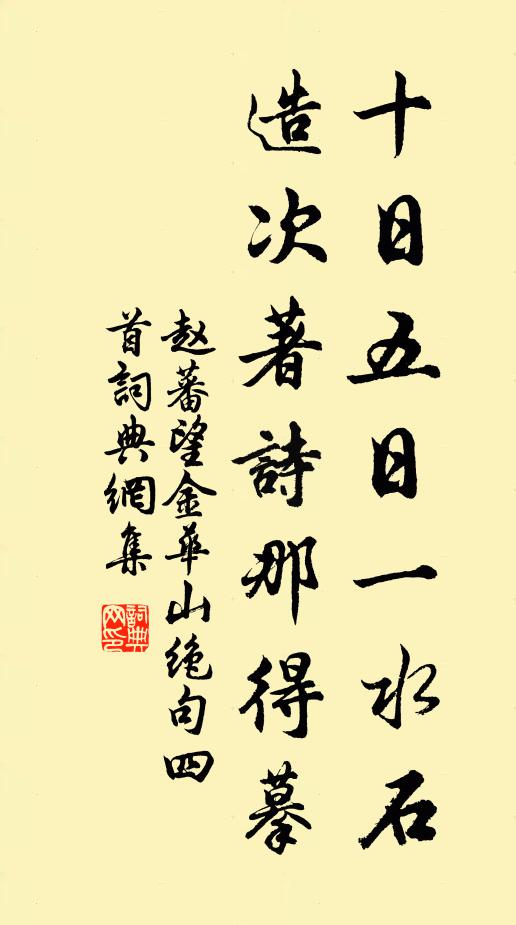 十日五日一水石
造次著詩那得摹
赵蕃望金華山绝句四
首詞典網集
詞典網印